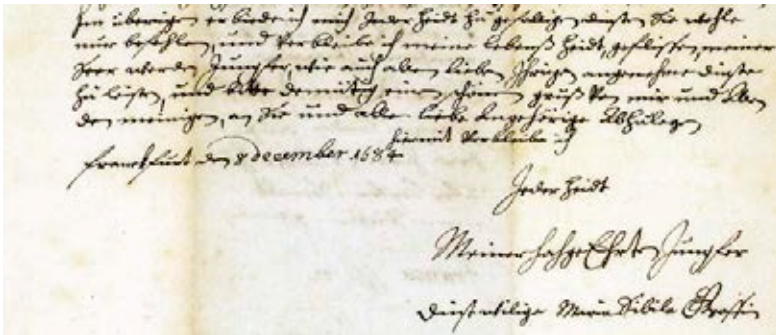 Im überigen erbiede ich mich Jeder Zeidt zu gefelligen diensten Sie wohle
nur befehlen, und verbleibe ich meine lebenß Zeidt, geflissen, meiner
Seer werden Jungfer, wie auch allen lieben Ihrigen angenehme dienste
zu leisten, und bitte demütig einen schönen gruß von mir und allen
den meinigen, an Sie und alle liebe angehörige abzulegen
hiermit verbleibe ich
franckfurt den 8 december 1684
Jeder Zeidt
Meiner hochgeEhrten Jungfer
dienstwilige Maria Sibila Graffin